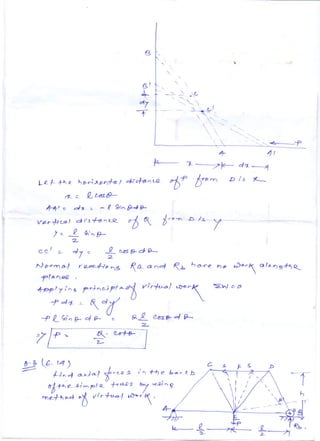 B
B'
C
dy
C'
A
A'
P
x
dx
Let the horizontal distance of P from D is x
x = l cosθ
AA' = dx = - l sinθ dθ
vertical distance of Q from D is y
y = l/2 sinθ
CC' = dy = l/2 cosθ dθ
Normal reactions Ra and Rb have no work along the
planes.
Applying principle of virtual work ΣW = 0
P dx = Q dy
P l sinθ dθ = Q l/2 cosθ dθ
=> P = Q/2 cotθ
Find axial forces in the bar
of the simple truss by using
method of virtual work.
C
D
h
A
B
P
l/2
l/2
Rb